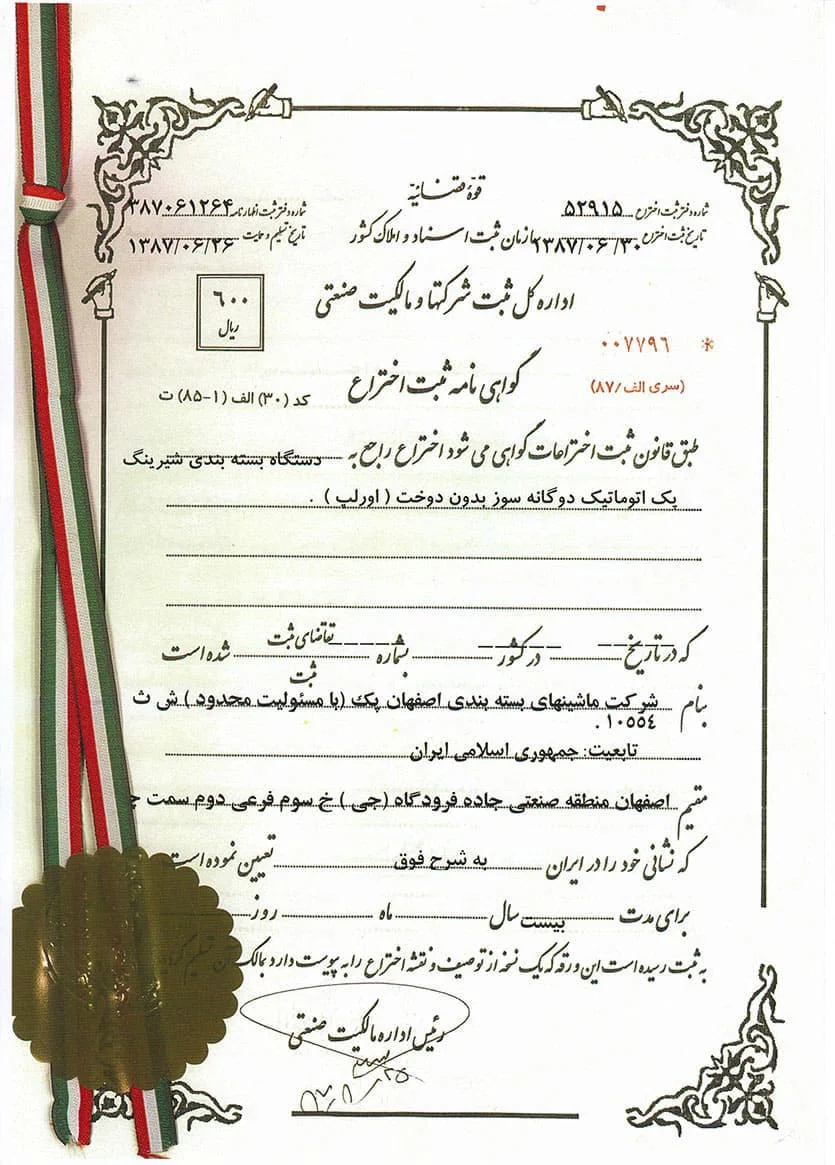 قوهٔ قضائیه
شماره دفتر ثبت اختراع ۵۲۹۱۵
شماره دفتر ثبت اظهارنامه ۳۸۷۰۶۱۲۶۴
تاریخ ثبت اختراع ۱۳۸۷/۰۶/۳۰
سازمان ثبت اسناد و املاک کشور
تاریخ تسلیم و حمایت ۱۳۸۷/۰۶/۲۶
اداره کل ثبت شرکتها و مالکیت صنعتی
۶۰۰
ریال
* ۰۰۷۷۹۶
(سری الف/۸۷)
گواهی نامه ثبت اختراع
کد (۳۰) الف (۱-۸۵) ت
طبق قانون ثبت اختراعات گواهی می شود اختراع راجع به دستگاه بسته بندی شیرینگ
پک اتوماتیک دوگانه سوز بدون دوخت ( اورلپ ) .
که در تاریخ ------ در کشور ------ بشماره ------ تقاضای ثبت شده است
ثبت
بنام شرکت ماشینهای بسته بندی اصفهان پک (با مسئولیت محدود ) ش ث
۱۰۵۵۴ .
تابعیت: جمهوری اسلامی ایران
مقیم اصفهان منطقه صنعتی جاده فرودگاه (جی ) خ سوم فرعی دوم سمت
که نشانی خود را در ایران به شرح فوق تعیین نموده است
برای مدت بیست سال ماه روز
به ثبت رسیده است این ورقه که یک نسخه از توصیف و نقشه اختراع را به پیوست دارد بمالک آن تسلیم
رئیس اداره مالکیت صنعتی